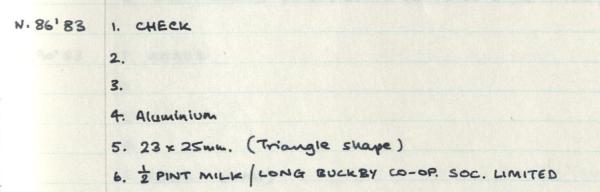 N. 86'83 1. CHECK
2.
3.
4. Aluminium
5. 23 x 25mm. (Triangle shape)
6. ½ PINT MILK / LONG BUCKBY CO-OP. SOC. LIMITED